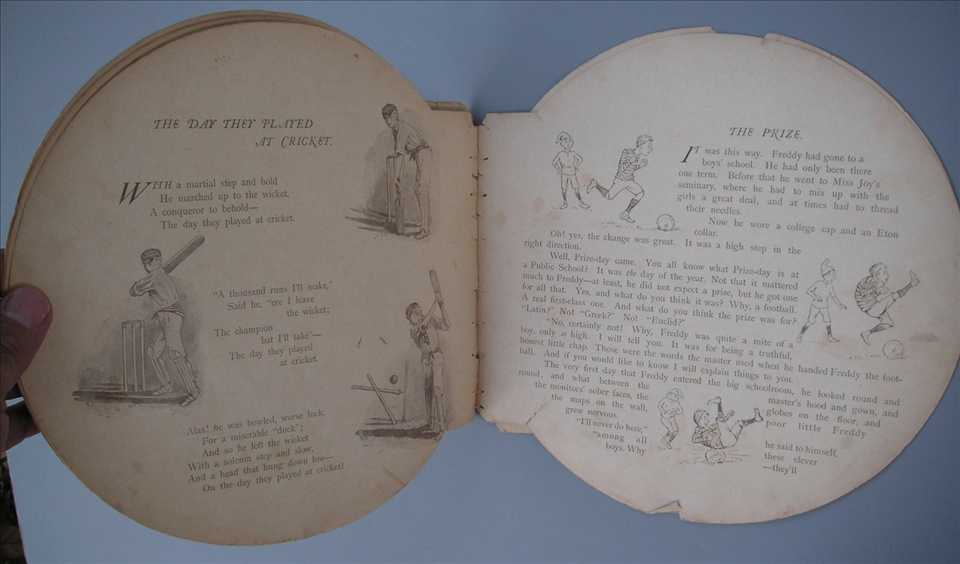 THE DAY THEY PLAYED
AT CRICKET.
WITH a martial step and bold
He marched up to the wicket,
A conqueror to behold—
The day they played at cricket.
"A thousand runs I'll make,"
Said he, "ere I leave
the wicket;
The champion
but I'll take"—
The day they played
at cricket.
Alas! he was bowled, worse luck,
For a miserable "duck";
And so he left the wicket
With a solemn step and slow,
And a head that hung down low—
On the day they played at cricket!
THE PRIZE.
IT was this way. Freddy had gone to a
boys' school. He had only been there
one term. Before that he went to Miss Joy's
seminary, where he had to mix up with the
girls a great deal, and at times had to thread
their needles.
Now he wore a college cap and an Eton
collar.
Oh! yes, the change was great. It was a high step in the
right direction.
Well, Prize-day came. You all know what Prize-day is at
a Public School? It was the day of the year. Not that it mattered
much to Freddy—at least, he did not expect a prize, but he got one
for all that. Yes, and what do you think it was? Why, a football.
A real first-class one. And what do you think the prize was for?
"Latin?" No! "Greek?" No! "Euclid?"
"No, certainly not! Why, Freddy was quite a mite of a
boy, only so high. I will tell you. It was for being a truthful,
honest little chap. Those were the words the master used when he handed Freddy the foot-
ball. And if you would like to know I will explain things to you.
The very first day that Freddy entered the big schoolroom, he looked round and
round, and what between the master's hood and gown, and
the monitors' sober faces, the globes on the floor, and
the maps on the wall, poor little Freddy
grew nervous.
"I'll never do here," he said to himself,
"among all these clever
boys. Why —they'll